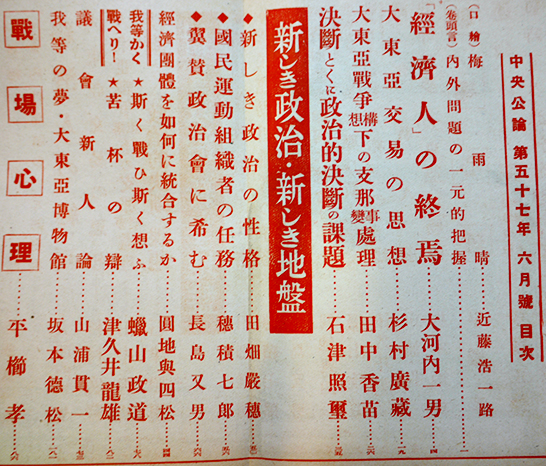 中央公論 第五十七年 六月號 目次
(口繪)梅雨晴 近藤浩一路
(卷頭言)內外問題の一元的把握 一
「經濟人」の終焉 大河內一男 四
大東亞交易の思想 杉村廣藏 一九
大東亞戰爭下の支那事變處理構想 田中香苗 二六
決斷 とくに政治的決斷の課題 石津照璽
新しき政治・新しき地盤
◆新しき政治の性格 田畑嚴穗
◆國民運動組織者の任務 穗積七郎
◆翼贊政治會に希む 長島又男
經濟團體を如何に統合するか 圓地與四松
我等かく戰へり!
★斯く戰ひ斯く想ふ 蠟山政道
★苦杯の辯 津久井龍雄
議會新人論 山浦貫一
我等の夢・大東亞博物館 坂本德松
戰場心理 平櫛孝